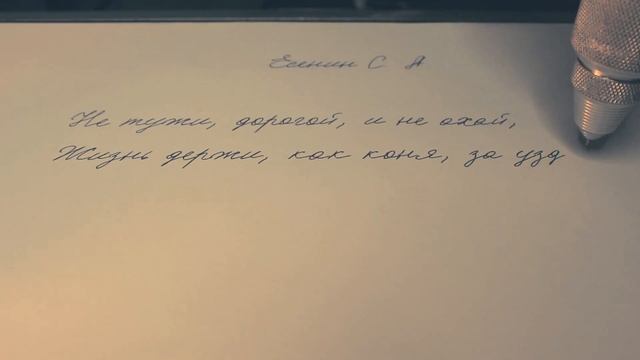 Есенин С А
Не тужи, дорогой, и не охай,
Жизнь держи, как коня, за узд